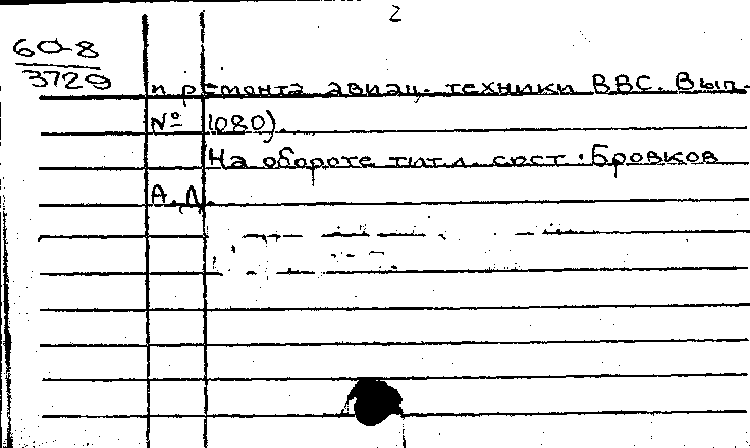 2
60-8
3729
п ремонта авиац. техники ВВС. Вып.
№ 1080).
На обороте титл. сост.: Бровков
А.Д.